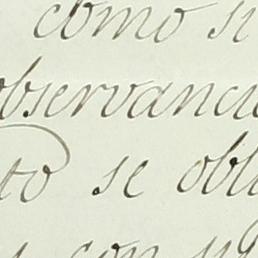 como si
observanci
to se obli
con